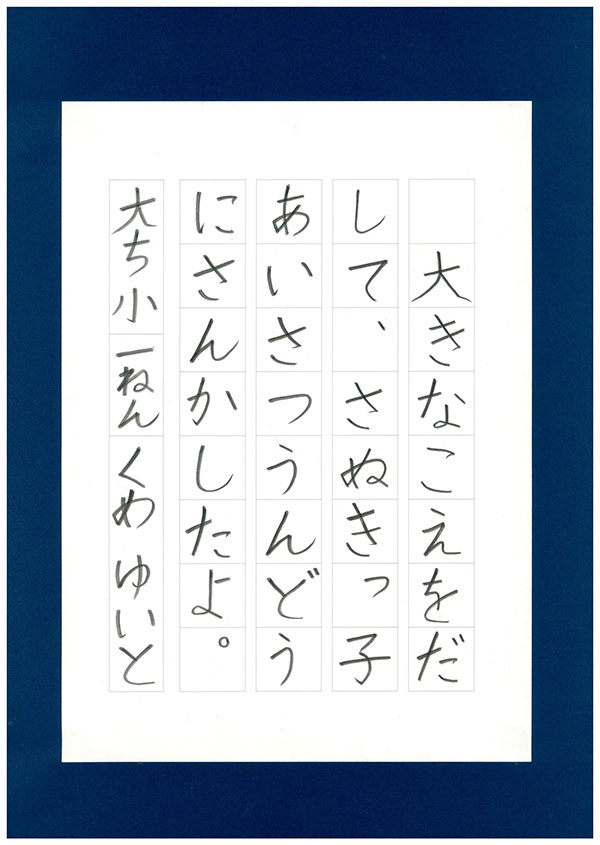 大きなこえをだ
して、さぬきっ子
あいさつうんどう
にさんかしたよ。
大ち小 一ねん くわ ゆいと